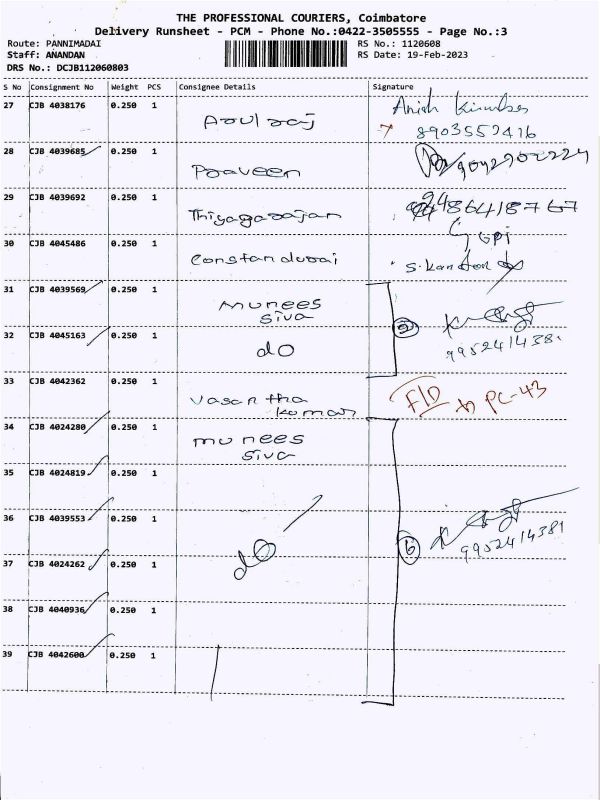 THE PROFESSIONAL COURIERS, Coimbatore
Delivery Runsheet - PCM - Phone No.:0422-3505555 - Page No.:3
Route: PANNIMADAI RS No.: 1120608
Staff: ANANDAN RS Date: 19-Feb-2023
DRS No.: DCJB112060803
S No Consignment No Weight PCS Consignee Details Signature
27 CJB 4038176 0.250 1 Aroul raj
8903552416
28 CJB 4039685 0.250 1 Praveen
29 CJB 4039692 0.250 1 Thiyagarajan
30 CJB 4045486 0.250 1 Constandurai
31 CJB 4039569 0.250 1 munees
siva
32 CJB 4045163 0.250 1 do
33 CJB 4042362 0.250 1 Vasantha
kumar F/D to PC-43
34 CJB 4024280 0.250 1 munees
siva
35 CJB 4024819 0.250 1
36 CJB 4039553 0.250 1
6 9952414381
37 CJB 4024262 0.250 1 do
38 CJB 4040936 0.250 1
39 CJB 4042600 0.250 1